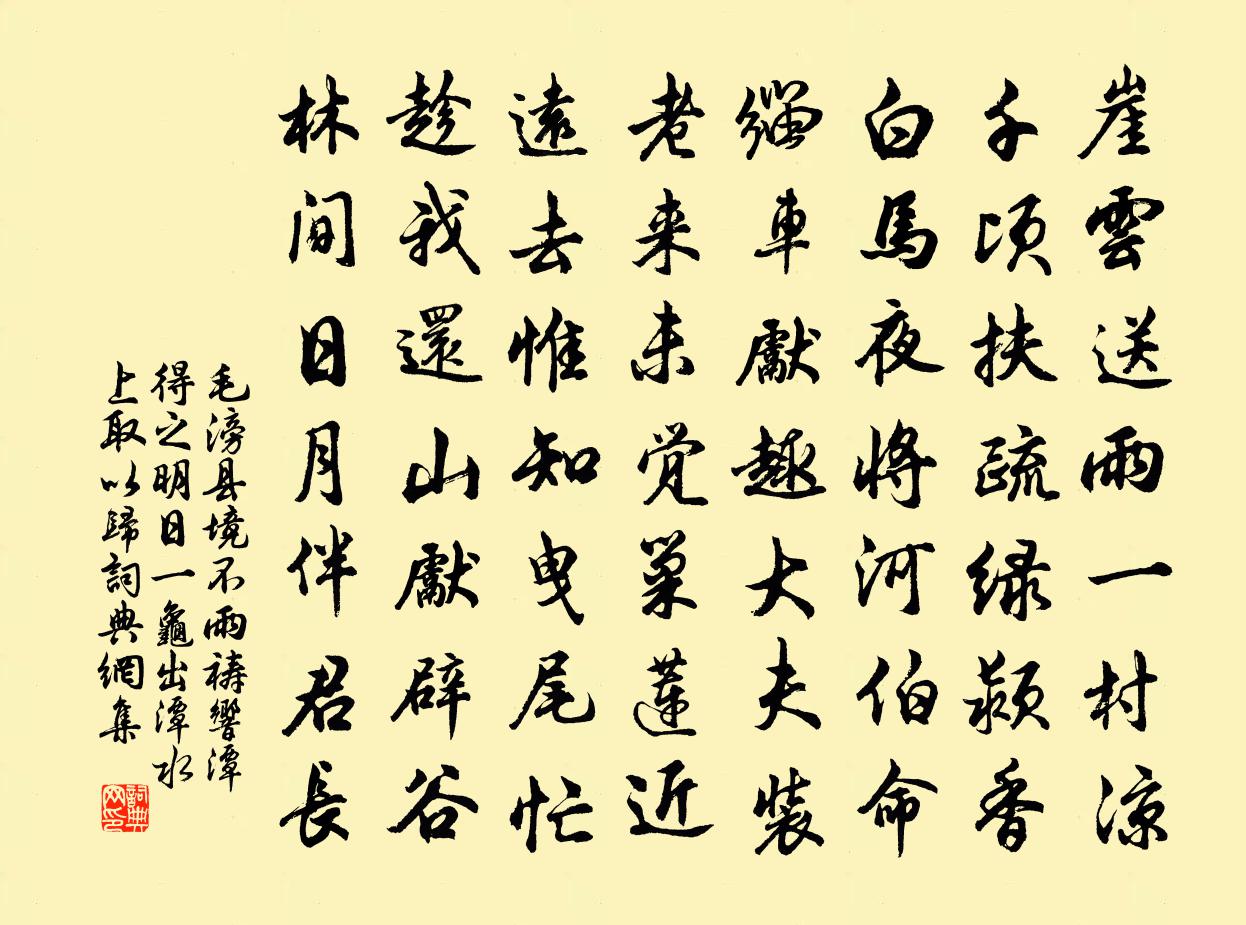 崖雲送雨一村涼
千頃扶疏緑颖香
白馬夜將河伯命
緇車獻趣大夫裝
老來未覚巢蓮近
遠去惟知曳尾忙
趁我還山獻辟谷
林間日月伴君長
毛滂县境不雨禱響潭
得之明日一龜出潭水
上取以歸詞典網集
詞典
网印